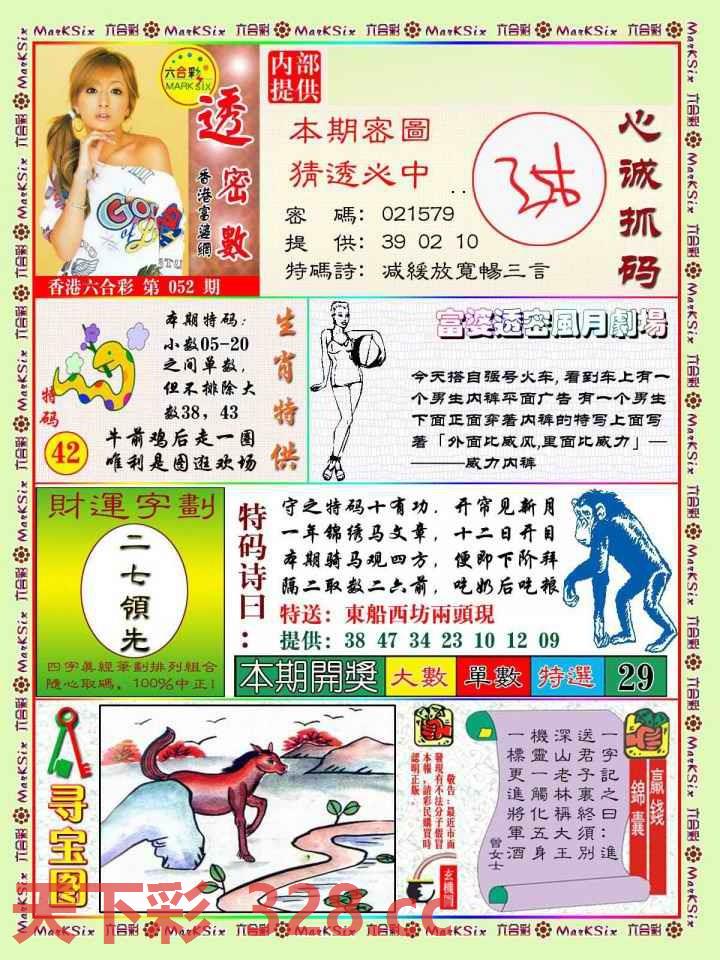 六合彩 MarKSix
六合彩
MARK SIX
透密數
香港富婆網
香港六合彩 第 052 期
内部
提供
本期密圖
猜透必中 ..
密 碼: 021579
提 供: 39 02 10
特碼詩: 减緩放寬暢三言
心诚抓码
本期特码:
小数05-20
之间单数,
但不排除大
数38, 43
特码
42
牛前鸡后走一圈
唯利是图逛欢场
生肖特供
富婆透密風月劇場
今天搭自强号火车, 看到车上有一
个男生内裤平面广告 有一个男生
下面正面穿着内裤的特写上面写
着「外面比威风,里面比威力」—
———威力内裤
財運字劃
二七領先
四字真經筆劃排列組合
隨心取碼, 100%中正!
特码诗曰:
守之特码十有功, 开帘见新月
一年锦绣马文章, 十二日开目
本期骑马观四方, 便即下阶拜
隔二取数二六前, 吃奶后吃粮
特送: 東船西坊兩頭現
提供: 38 47 34 23 10 12 09
本期開獎 大數 單數 特選 29
寻宝图
敬告:最近市面
發現有不法分子假冒
本報,請彩民購買時
認明正版.
玄機
贏錢
錦囊
一字記之曰:進
送君子裏終須別
深山老林稱大王
機靈一觸化五身
一標更進將軍酒
曾女士
天下彩 328.cc